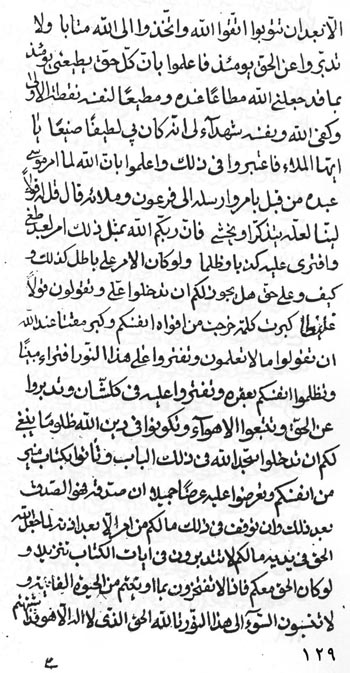 الا بعد ان تتوبوا اتقوا الله واتخذوا الى الله متابا ولا
تدبروا عن الحق يومئذ فاعلموا بان كل حق يطيعني
بما قد جعلني الله مطاعا عنده ومطيعا لنفسه نقطة الاولى
وكفى الله ونفسه شهداء لي انه كان بي لطيفا صنيعا يا
ايها الملاء فاعتبروا في ذلك واعلموا بان الله لما امر موسى
عبده من قبل بامر وارسله الى فرعون وملائه قال قل له قولا
لينا لعله يتذكر او يخشى فان ربكم الله بمثل ذلك امر لعبد طغى
وافترى عليه كذبا وظلما ولو كان الامر على باطل كذلك و
كيف وعلى حق هل يجوز لكم ان تدخلوا علي وتقولون قولا
غليظا كبرت كلمة خرجت من افواه انفسكم وكبر مقتا عند الله
ان تقولوا ما لا تعلمون وتفتروا على هذا النور افتراء مبينا
وتظلموا انفسكم بغيره وتفتروا عليه في كل شان وتدبروا
عن الحق وتتبعوا الاهواء وتكونوا في دين الله ظلوما ينبغي
لكم ان تدخلوا سجدا لله في ذلك الباب وتاتوا بكتاب منير
من انفسكم وتعرضوا عليه عرضا جميلا ان صدقه لهو الصدق
بعد ذلك وان توقف في ذلك ما لكم من امر الا بعد اذنه لما جعل الله
الحق في يديه ما لكم لا تتدبرون في ايات الكتاب تنزيلا و
لو كان الحق معكم فاذا لا تفتخرون بما اوتيتم من الحيوة الفانية و
لا تنسبون السوء الى هذا النور تالله الحق الذي لا اله الا هو قد
١٢٩